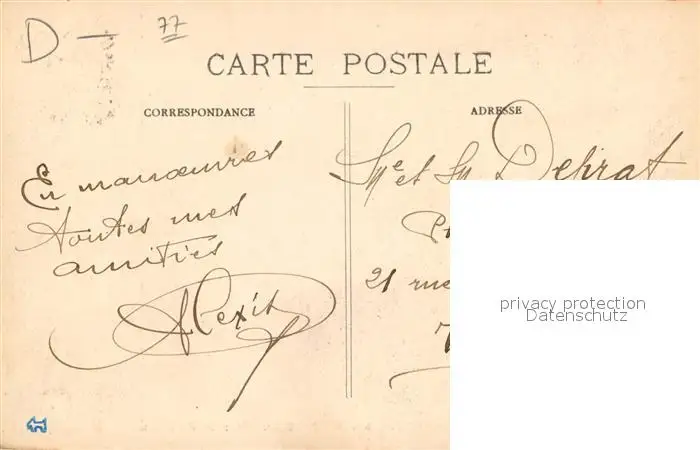 D - 77
CARTE POSTALE
CORRESPONDANCE
ADRESSE
En manœuvres
toutes mes
amitiés
Alexis
Mme et M Delirat
21 rue
privacy protection
Datenschutz